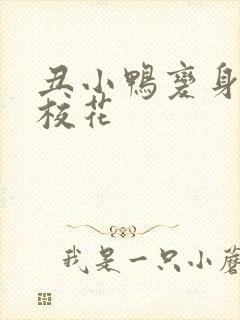 丑小鸭变身
校花
我是一只小蘑